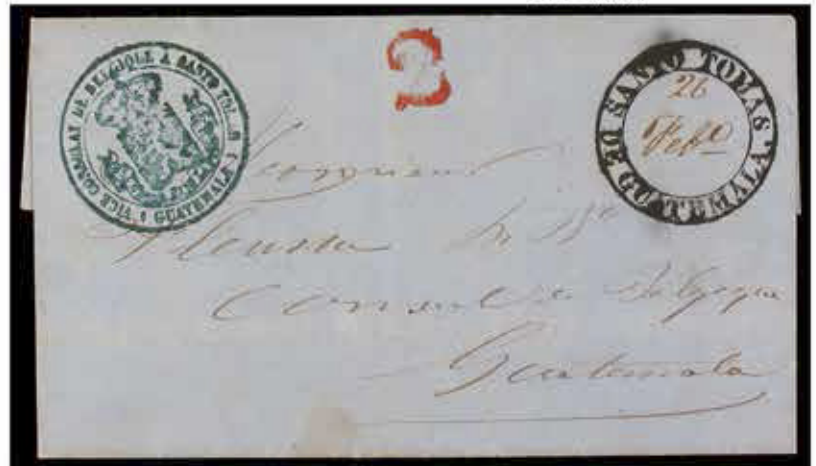 VICE CONSULAT DE BELGIQUE A SANTO TOMAS
GUATEMALA
2
DE SANTO TOMAS,
GUATEMALA,
26
Feb
Monsieur
Consul de Belgique
Guatemala